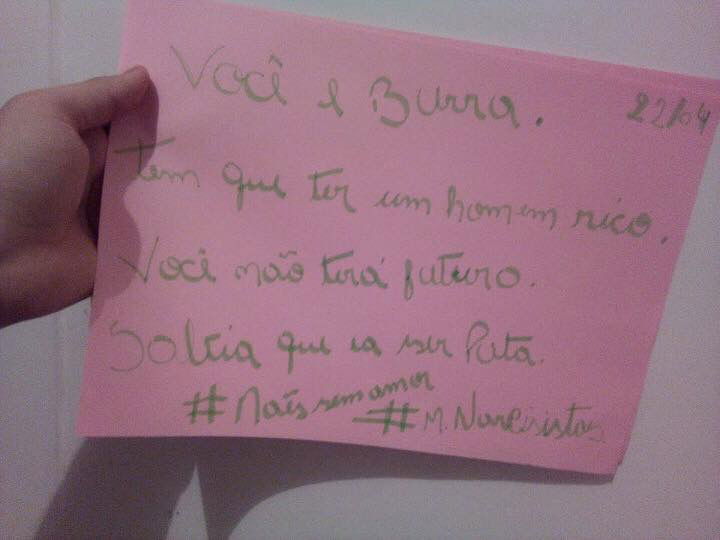 Você e Burra.
22/04
tem que ter um homem rico.
Você não terá futuro.
Sabia que ia ser Puta.
#Mães sem amor
#M. Narcisistas